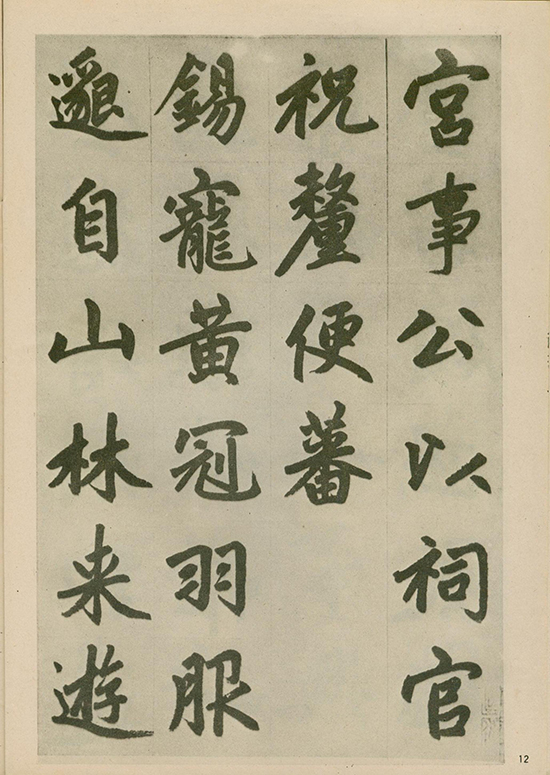 宮事公以祠官
祝釐便蕃
錫寵黄冠羽服
邈自山林来遊
12